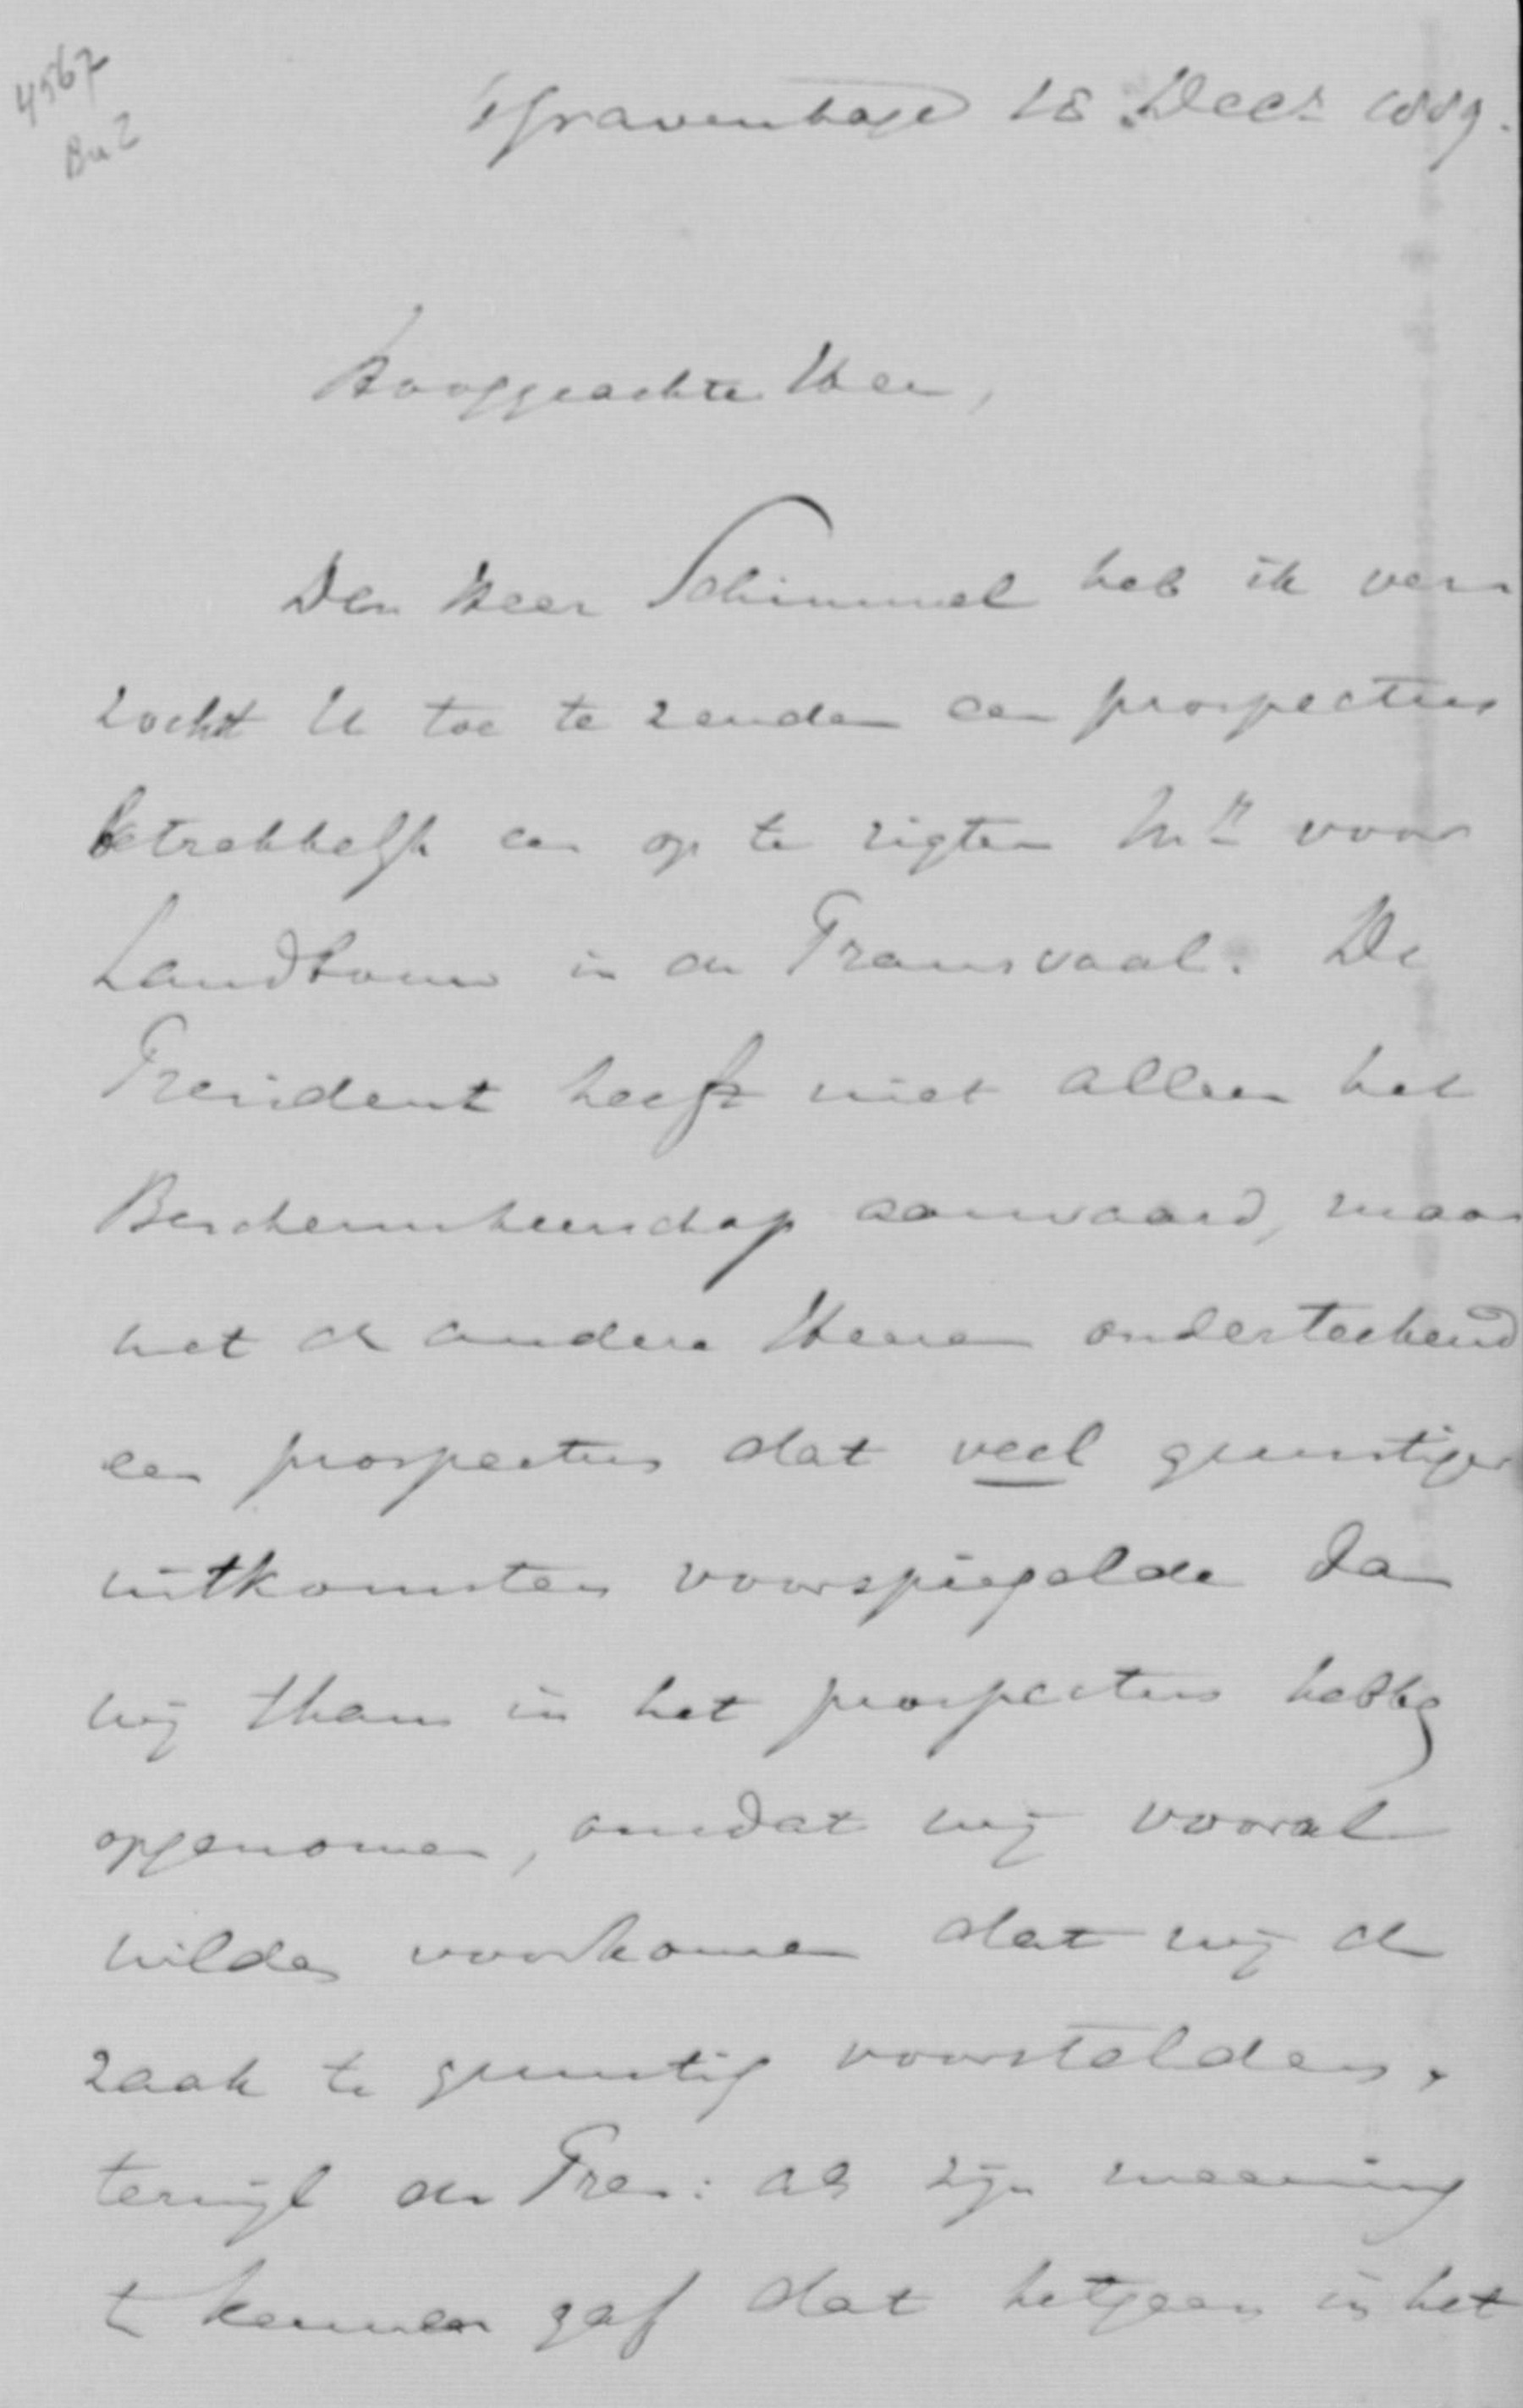 4567
Bu 2
'sGravenhage 18 Decr 1889.
Hooggeachte Heer,
Den Heer Schimmel heb ik ver
zocht U toe te zenden een prospectus
betrekkelijk een op te rigten Mij voor
Landbouw in de Transvaal. De
President heeft niet alleen het
Beschermheerschap aanvaard, maar
met de andere Heeren onderteekend
een prospectus dat veel gunstiger
uitkomsten voorspiegelde dan
wij thans in het prospectus hebben
opgenomen, omdat wij vooral
wilden voorkomen dat wij de
zaak te gunstig voorstelden,
terwijl de Pres: als zijn meening
te kennen gaf dat hetgeen in het